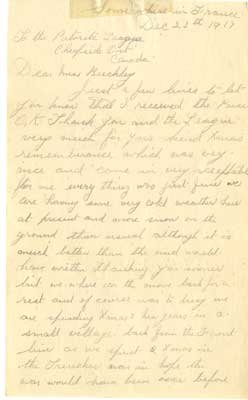 Somewhere in France
Dec 22th 1917
To the Patriotic League
Cheapside Ont
Canada
Dear Miss Buckley
Just a few lines to let
you know that I received the
O.K. Thank you and the League
very much for your kind Xmas
remembrance which was very
nice and come in very acceptable
for me every thing was first we
are having some very cold weather here
at present and more snow on the
ground than usual although it is
much better than the mud would
have written thanking you sooner
but we where on the move back for a
rest and of course was to busy we
are spending Xmas & New years in a
small village back from the Front
line as we spent 2 Xmas in
the Trenches was in hope the
war would have been over before